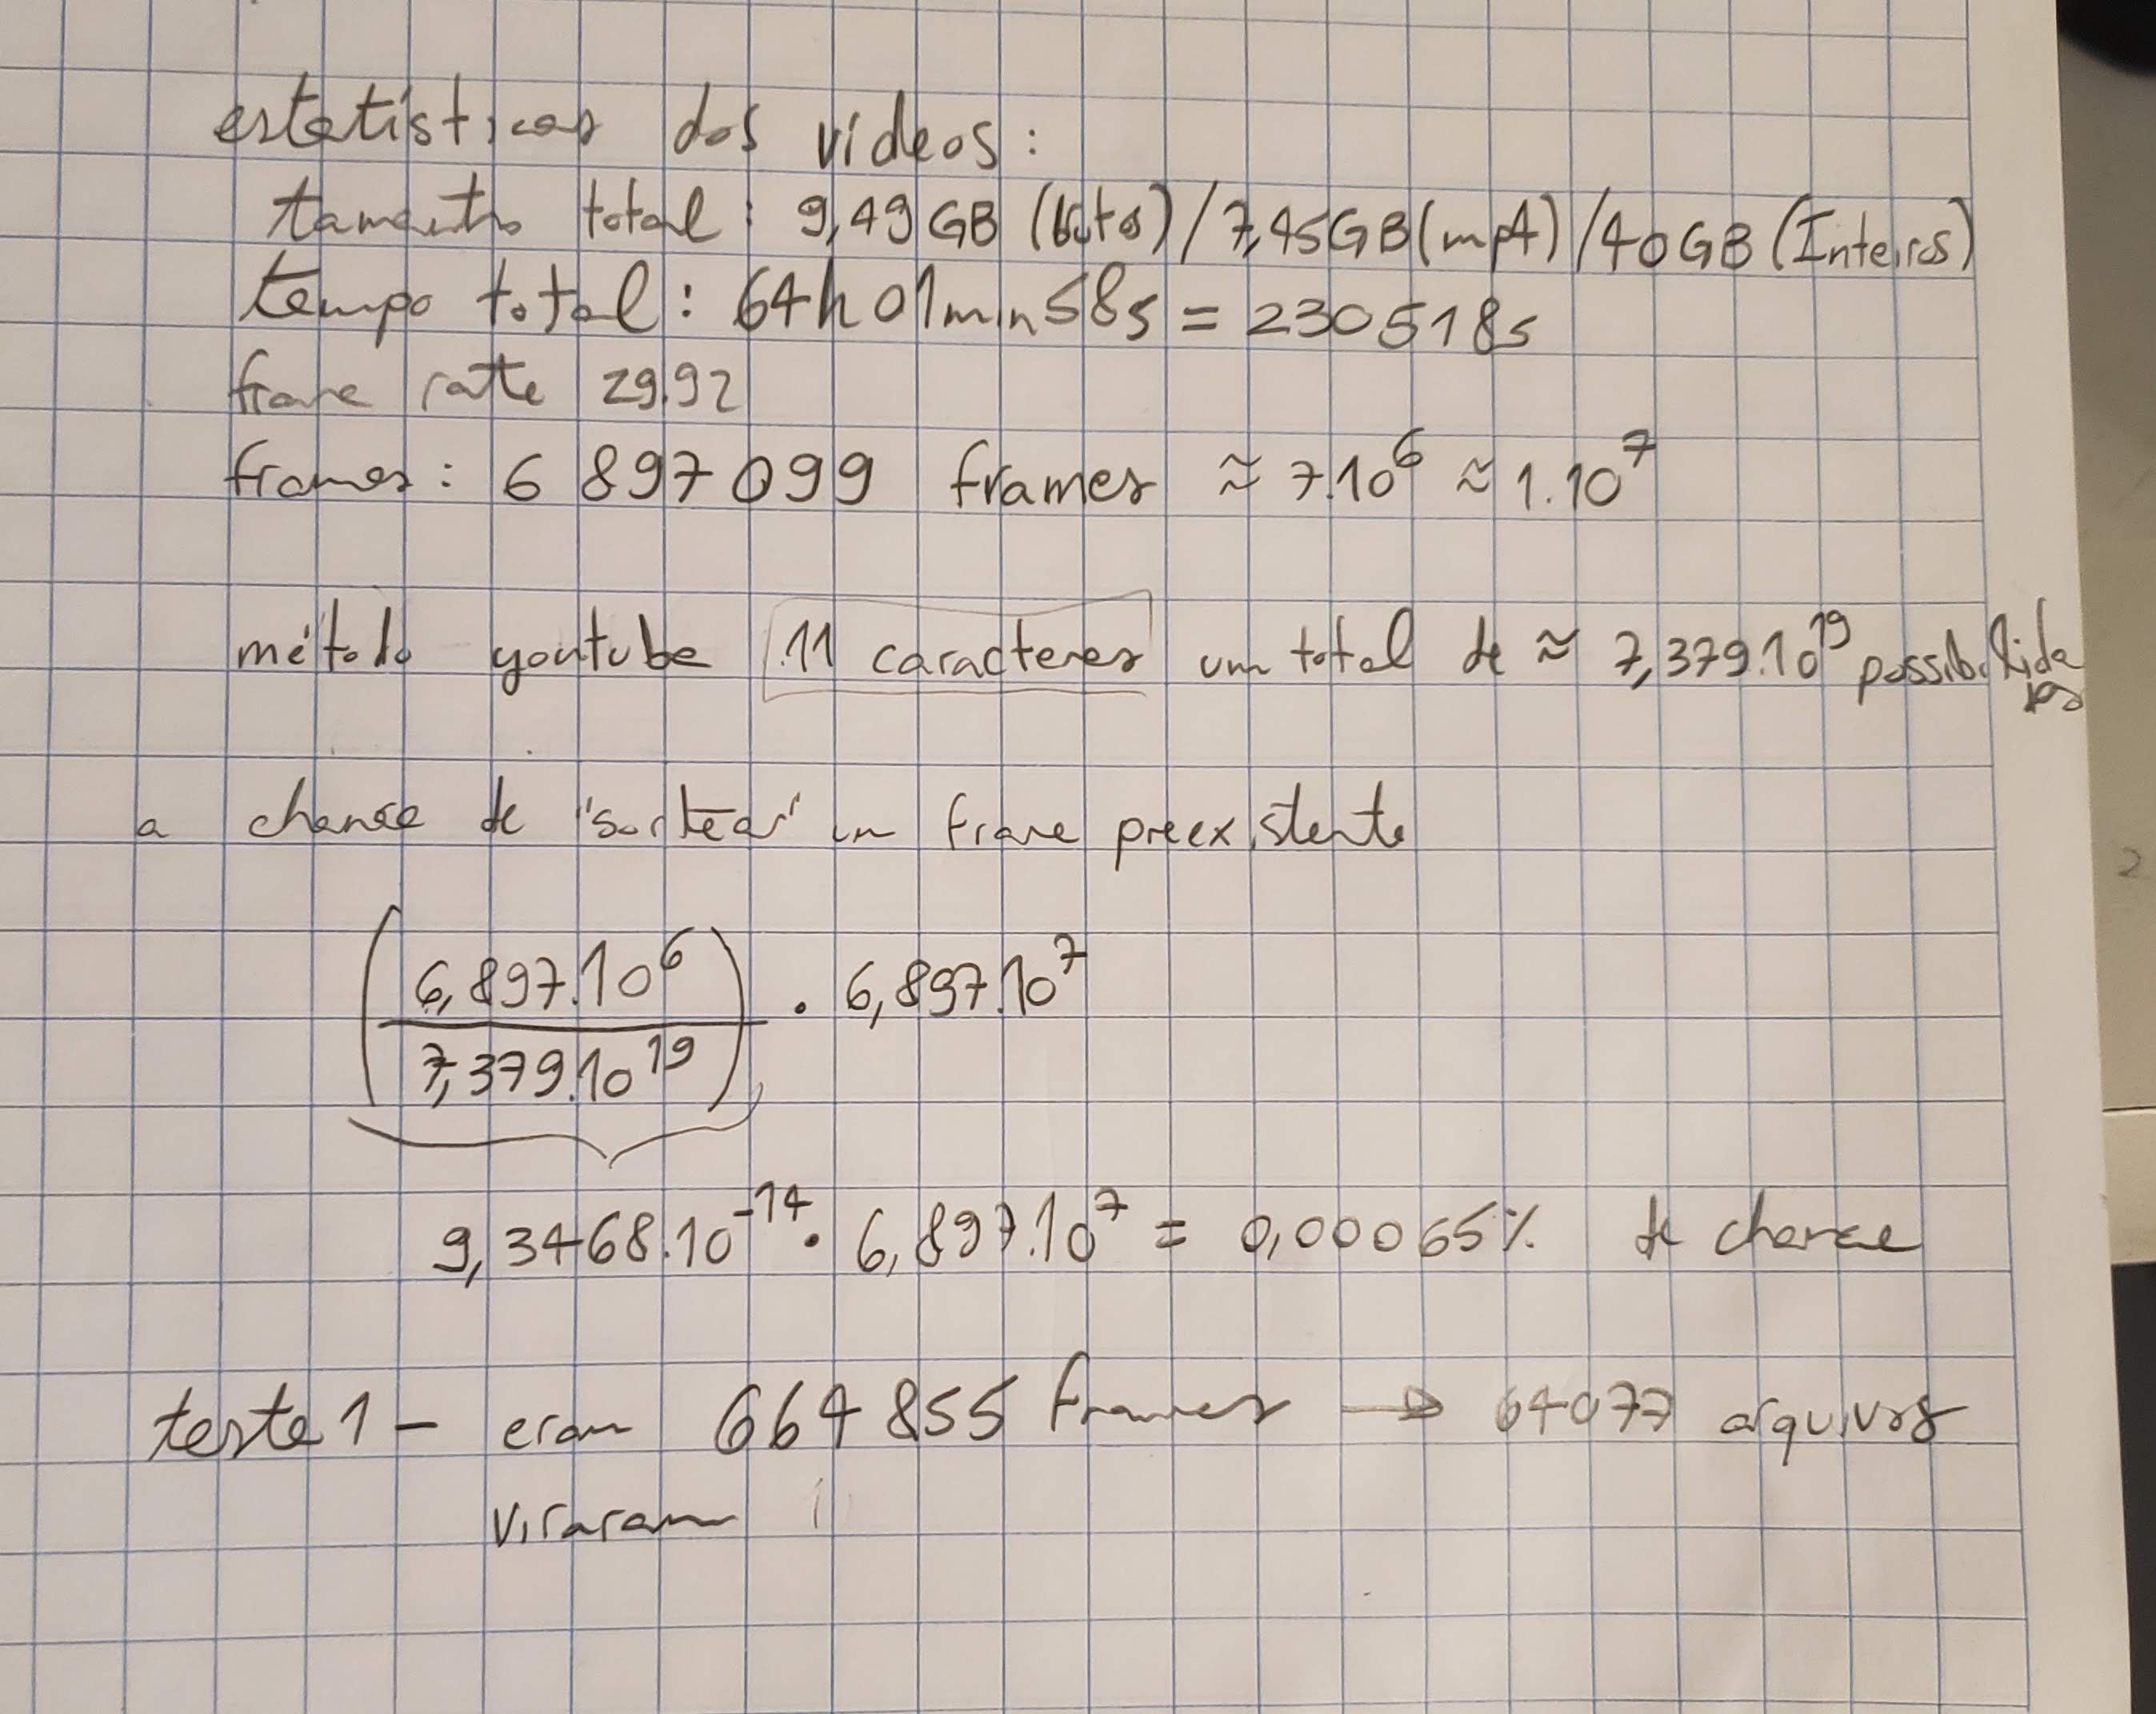 estatísticas dos vídeos:
tamanho total: 9,49 GB (bruto) / 7,45GB (mp4) / 40 GB (Inteiros)
tempo total: 64h 01min 58s = 230518s
frame rate 29.92
frames: 6 897 099 frames ≈ 7.10⁶ ≈ 1.10⁷
método youtube 11 caracteres um total de ≈ 7,379.10¹⁹ possibilidades
a chance de "sortear" um frame preexistente
(6,897.10⁶ / 7,379.10¹⁹) . 6,897.10⁷
9,3468.10⁻¹⁴ . 6,897.10⁷ = 0,00065% de chance
teste 1 - eram 664 855 frames → 64077 arquivos
viraram